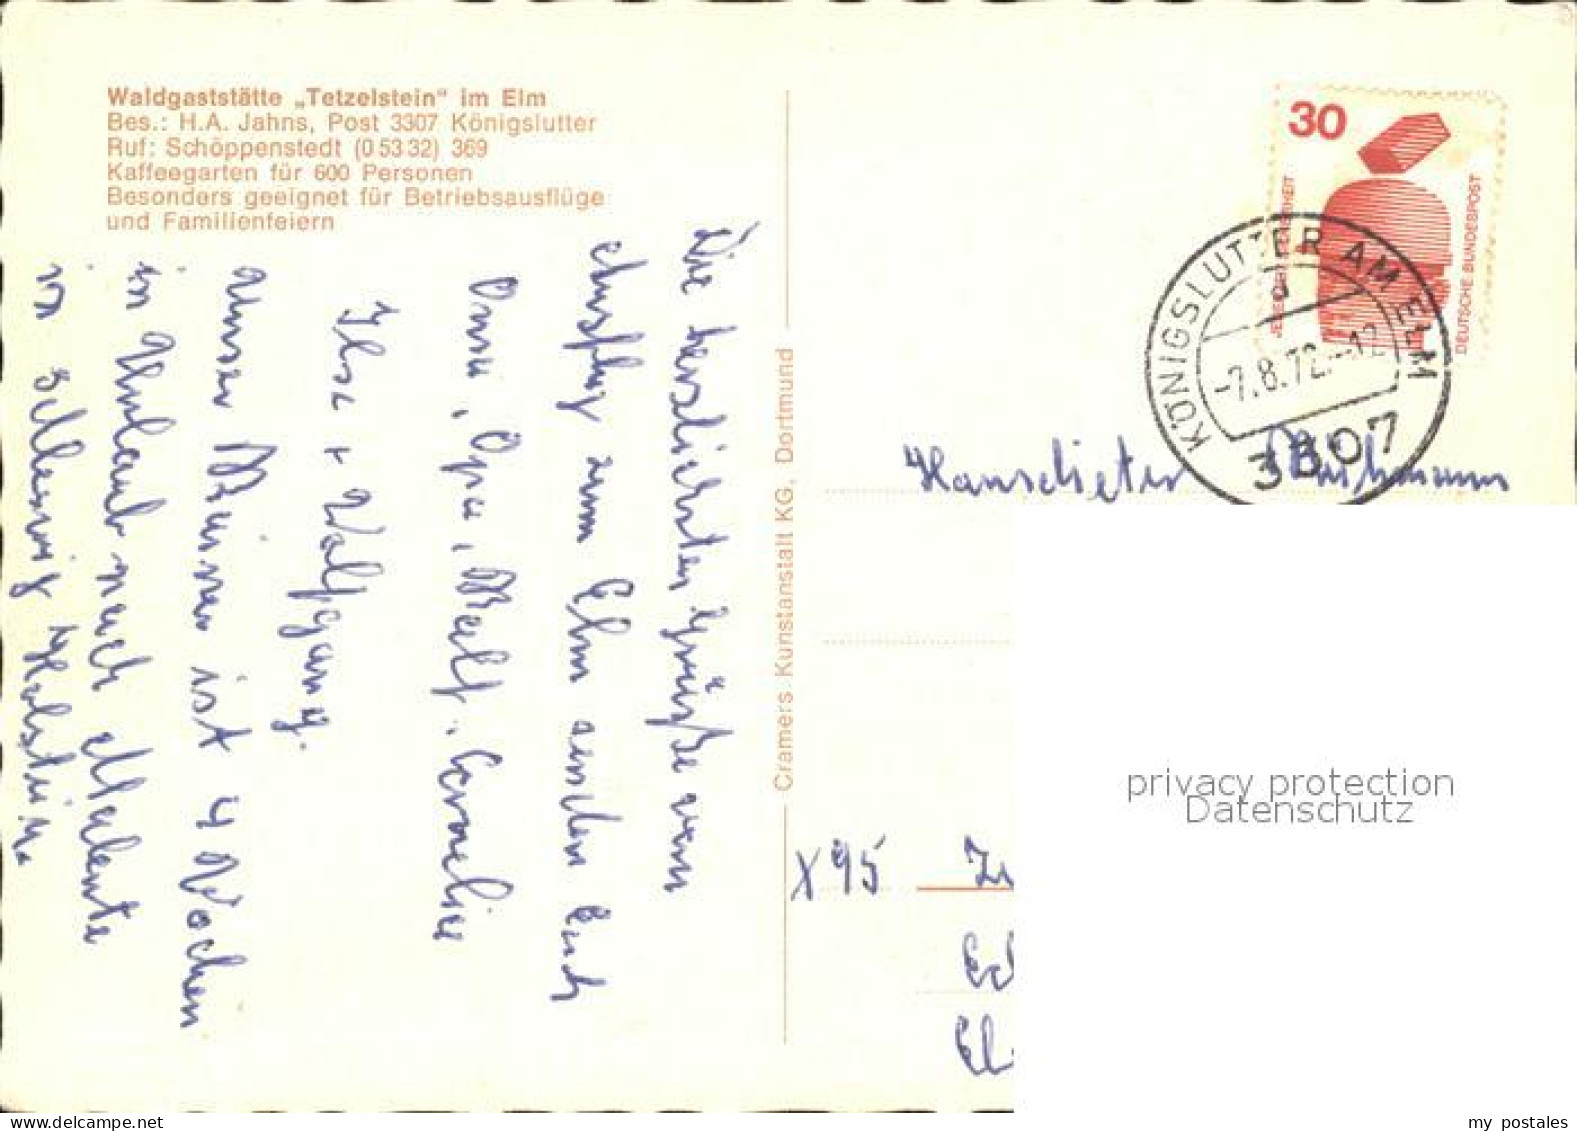 Waldgaststätte „Tetzelstein" im Elm
Bes.: H.A. Jahns, Post 3307 Königslutter
Ruf: Schöppenstedt (0 53 32) 369
Kaffeegarten für 600 Personen
Besonders geeignet für Betriebsausflüge
und Familienfeiern
Die herzlichsten Grüße vom
Ausflug zum Elm senden Euch
Oma, Opa, Ralf, Cornelia
Ilse + Wolfgang.
Unser Rainer ist 4 Wochen
in Urlaub nach Malente
in Schleswig Holstein.
Cramers Kunstanstalt KG, Dortmund
30
JEDERZEIT SICHERHEIT
DEUTSCHE BUNDESPOST
KÖNIGSLUTTER AM ELM
d
-7.8.72.-12
3307
Hansdieter
X 95
privacy protection
Datenschutz
my postales